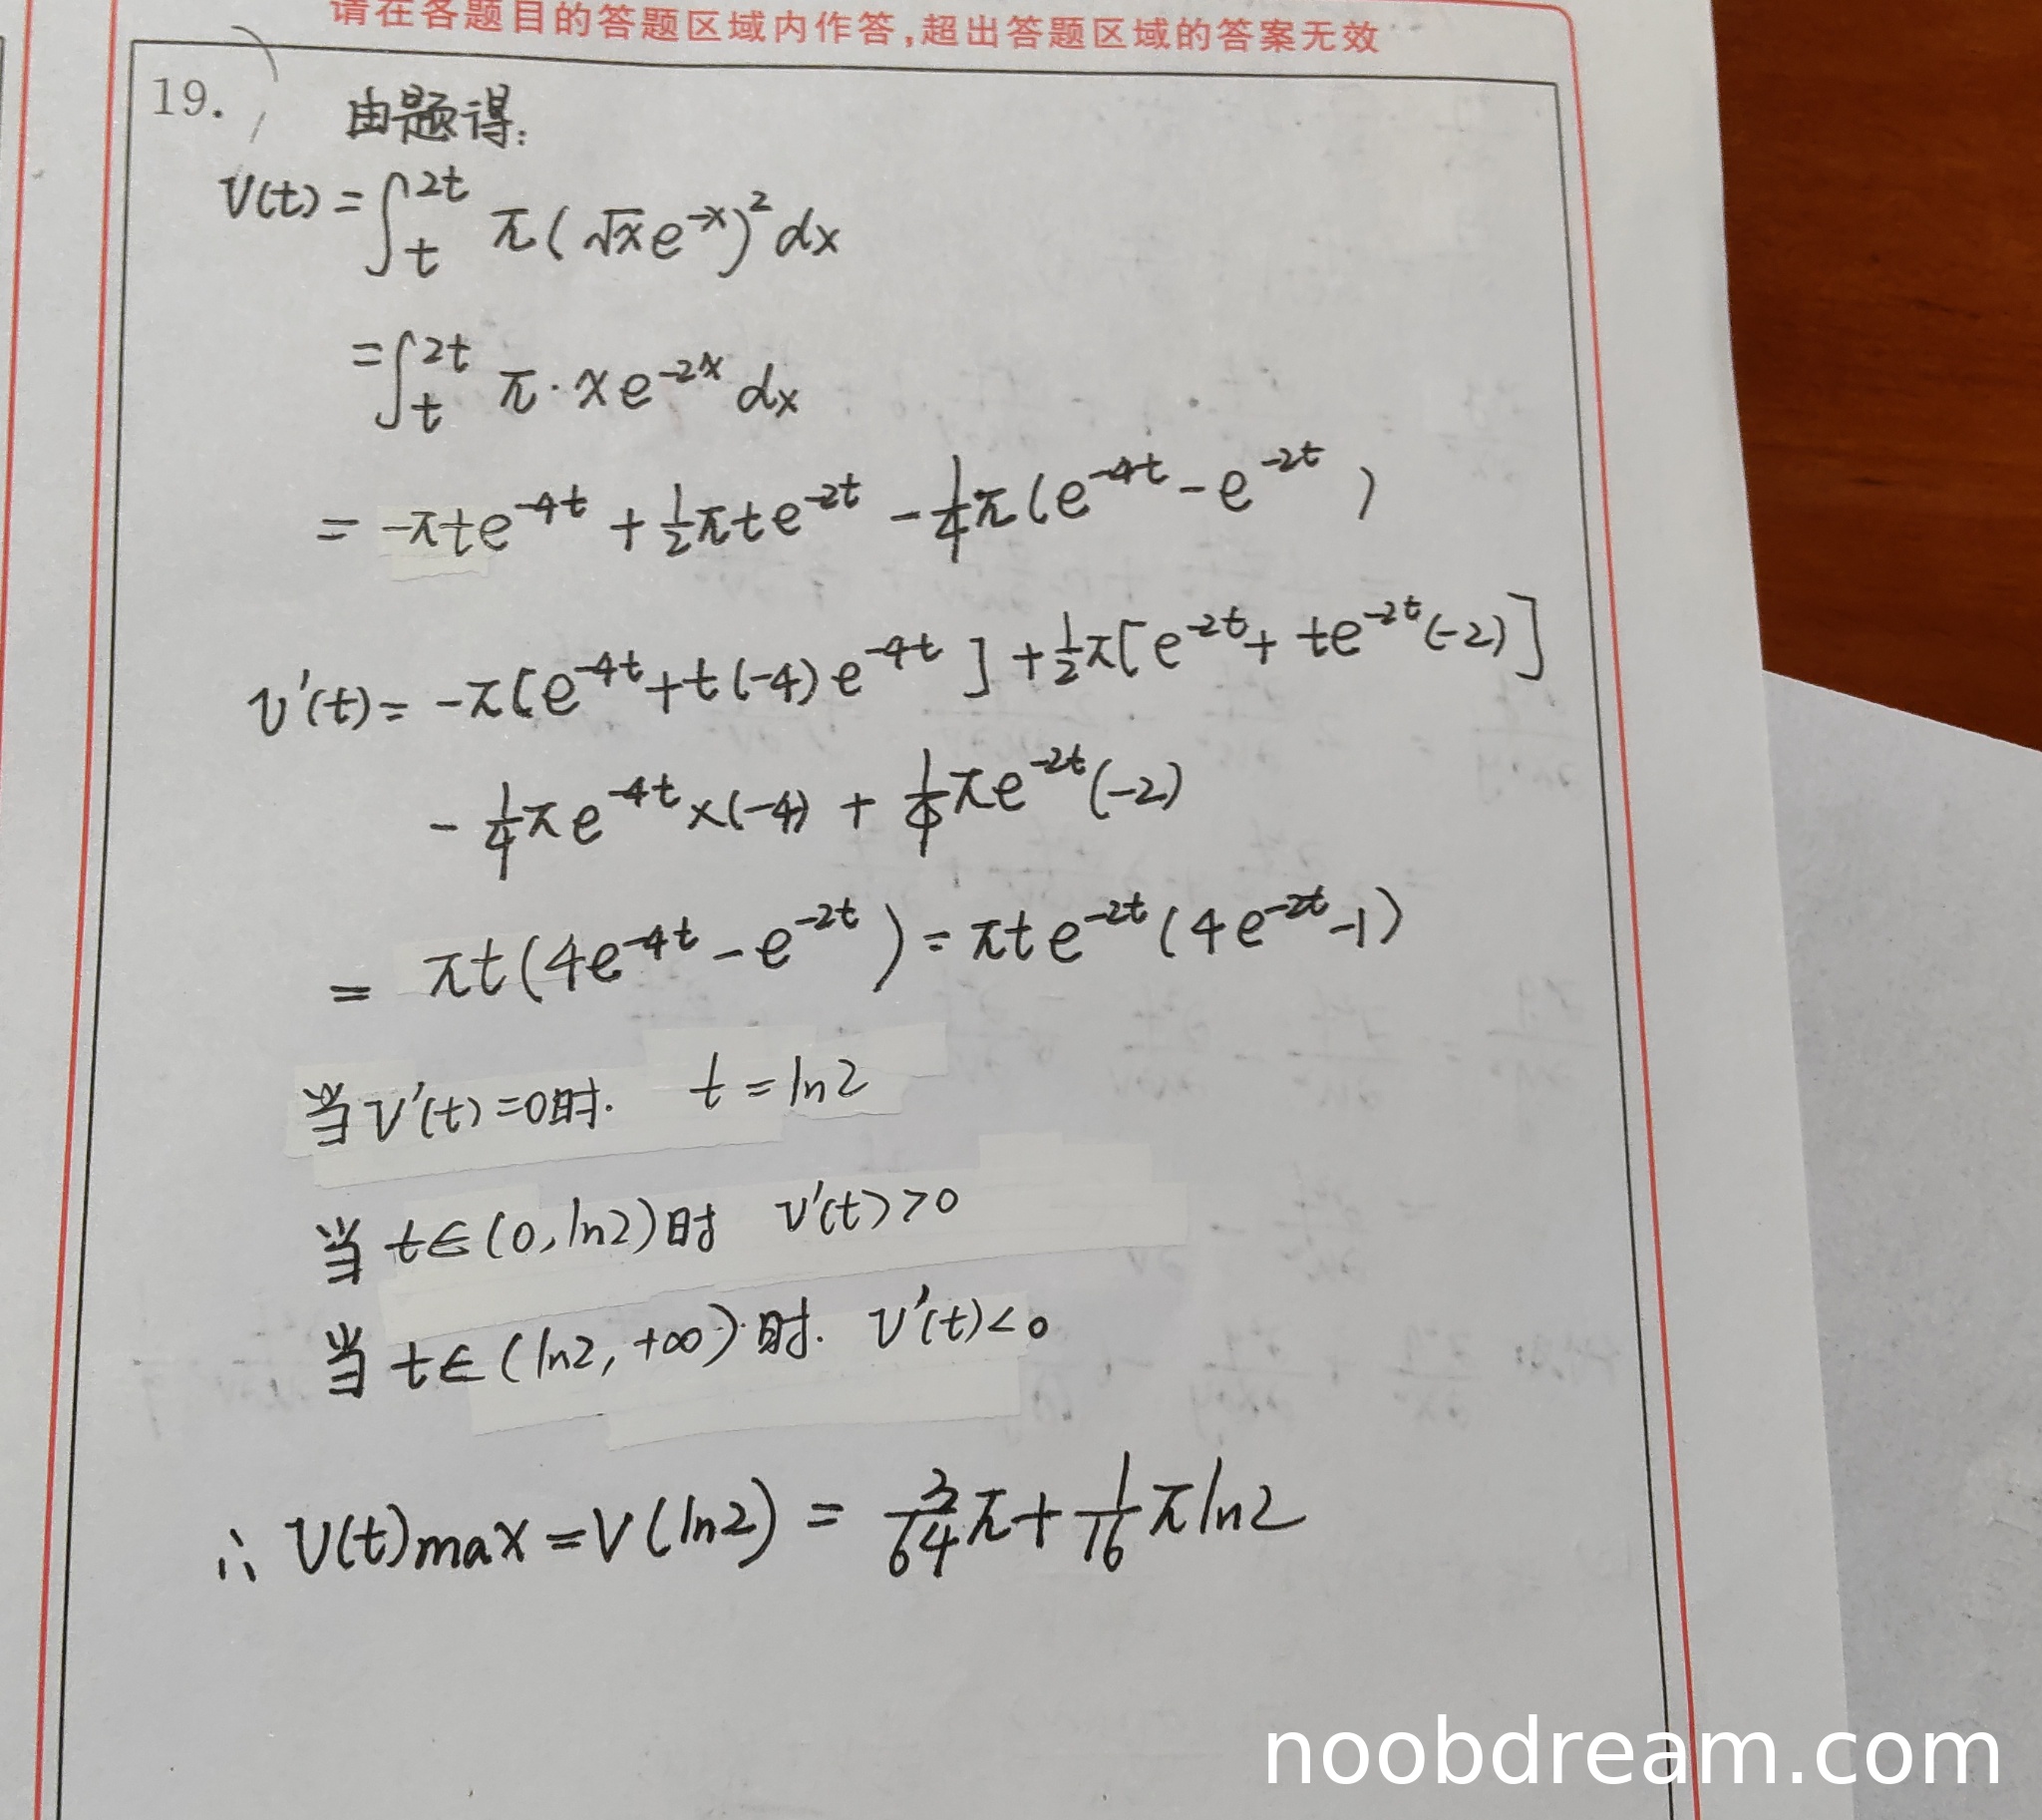 请在各题目的答题区域内作答,超出答题区域的答案无效
19. 由题得:
V(t) = ∫_t^{2t} π(√x e^{-x})^2 dx
= ∫_t^{2t} π·x e^{-2x} dx
= -πte^{-4t} + 1/2 πte^{-2t} - 1/4 π(e^{-4t} - e^{-2t})
V'(t) = -π[e^{-4t} + t(-4)e^{-4t}] + 1/2 π[e^{-2t} + te^{-2t}(-2)]
- 1/4 πe^{-4t}×(-4) + 1/4 πe^{-2t}(-2)
= πt(4e^{-4t} - e^{-2t}) = πte^{-2t}(4e^{-2t} - 1)
当V'(t)=0时. t=ln2
当 t∈(0,ln2)时 V'(t)>0
当 t∈(ln2,+∞)时. V'(t)<0
∴ V(t)max = V(ln2) = 3/64 π + 1/16 πln2
noobdream.com